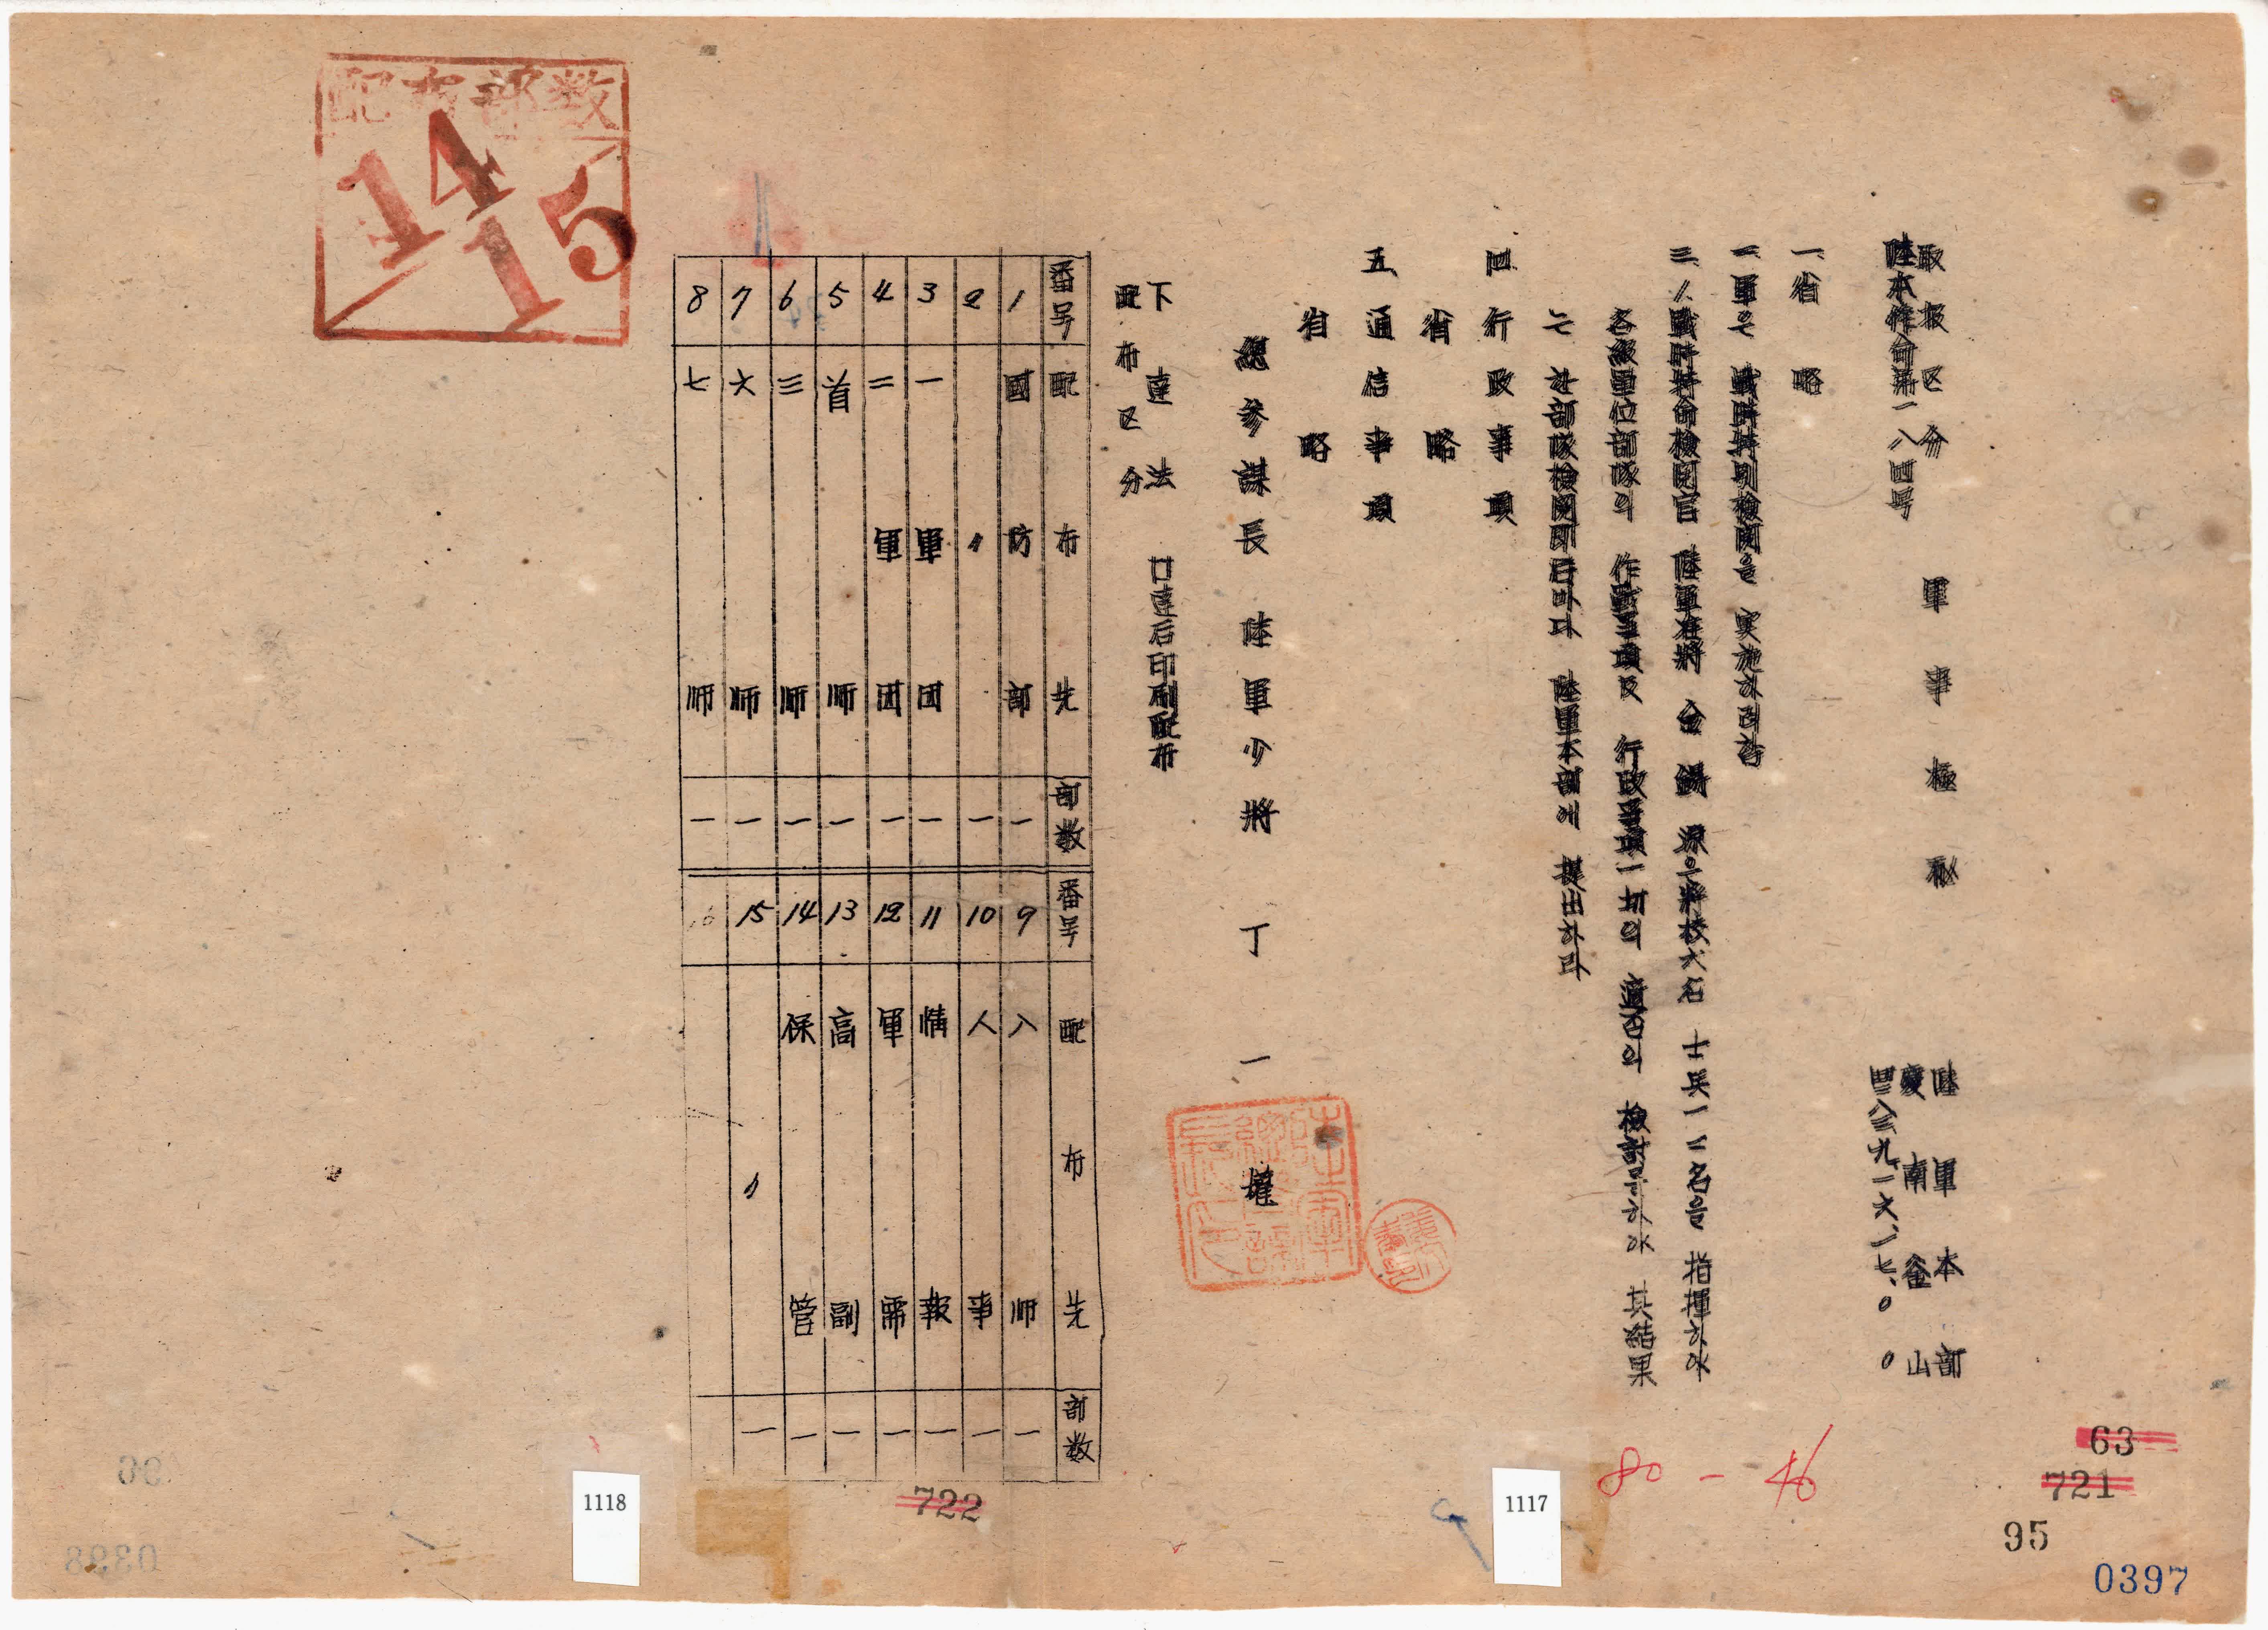 取扱区分 軍事極秘
陸軍本部
慶南釜山
陸本作命第一八四号
四二八三、九、一六、一七、〇〇
一、省略
二、軍은 戰時特別檢閱을 実施하려함
三、1、戰時特命檢閱官 陸軍准將 金錫源은 將校六名 士兵一二名을 指揮하以
各級單位部隊의 作戰事項及 行政事項一切의 適否의 檢討를하以 其結果
2、許部隊檢閱 陸軍本部에 提出하라
四、行政事項
省略
五、通信事項
省略
總參謀長 陸軍少將 丁一權
下達法 口達后印刷配布
配布区分
番号 配布先 部数 番号 配布先 部数
1 國防部 一 9 八師 一
2 〃 一 10 人事 一
3 一軍団 一 11 情報 一
4 二軍団 一 12 軍需 一
5 首師 一 13 高副 一
6 三師 一 14 保管 一
7 六師 一 15 〃 一
8 七師 一 16
配布部数
14
15
80-46
63
721
95
0397
1117
722
1118
96
0398